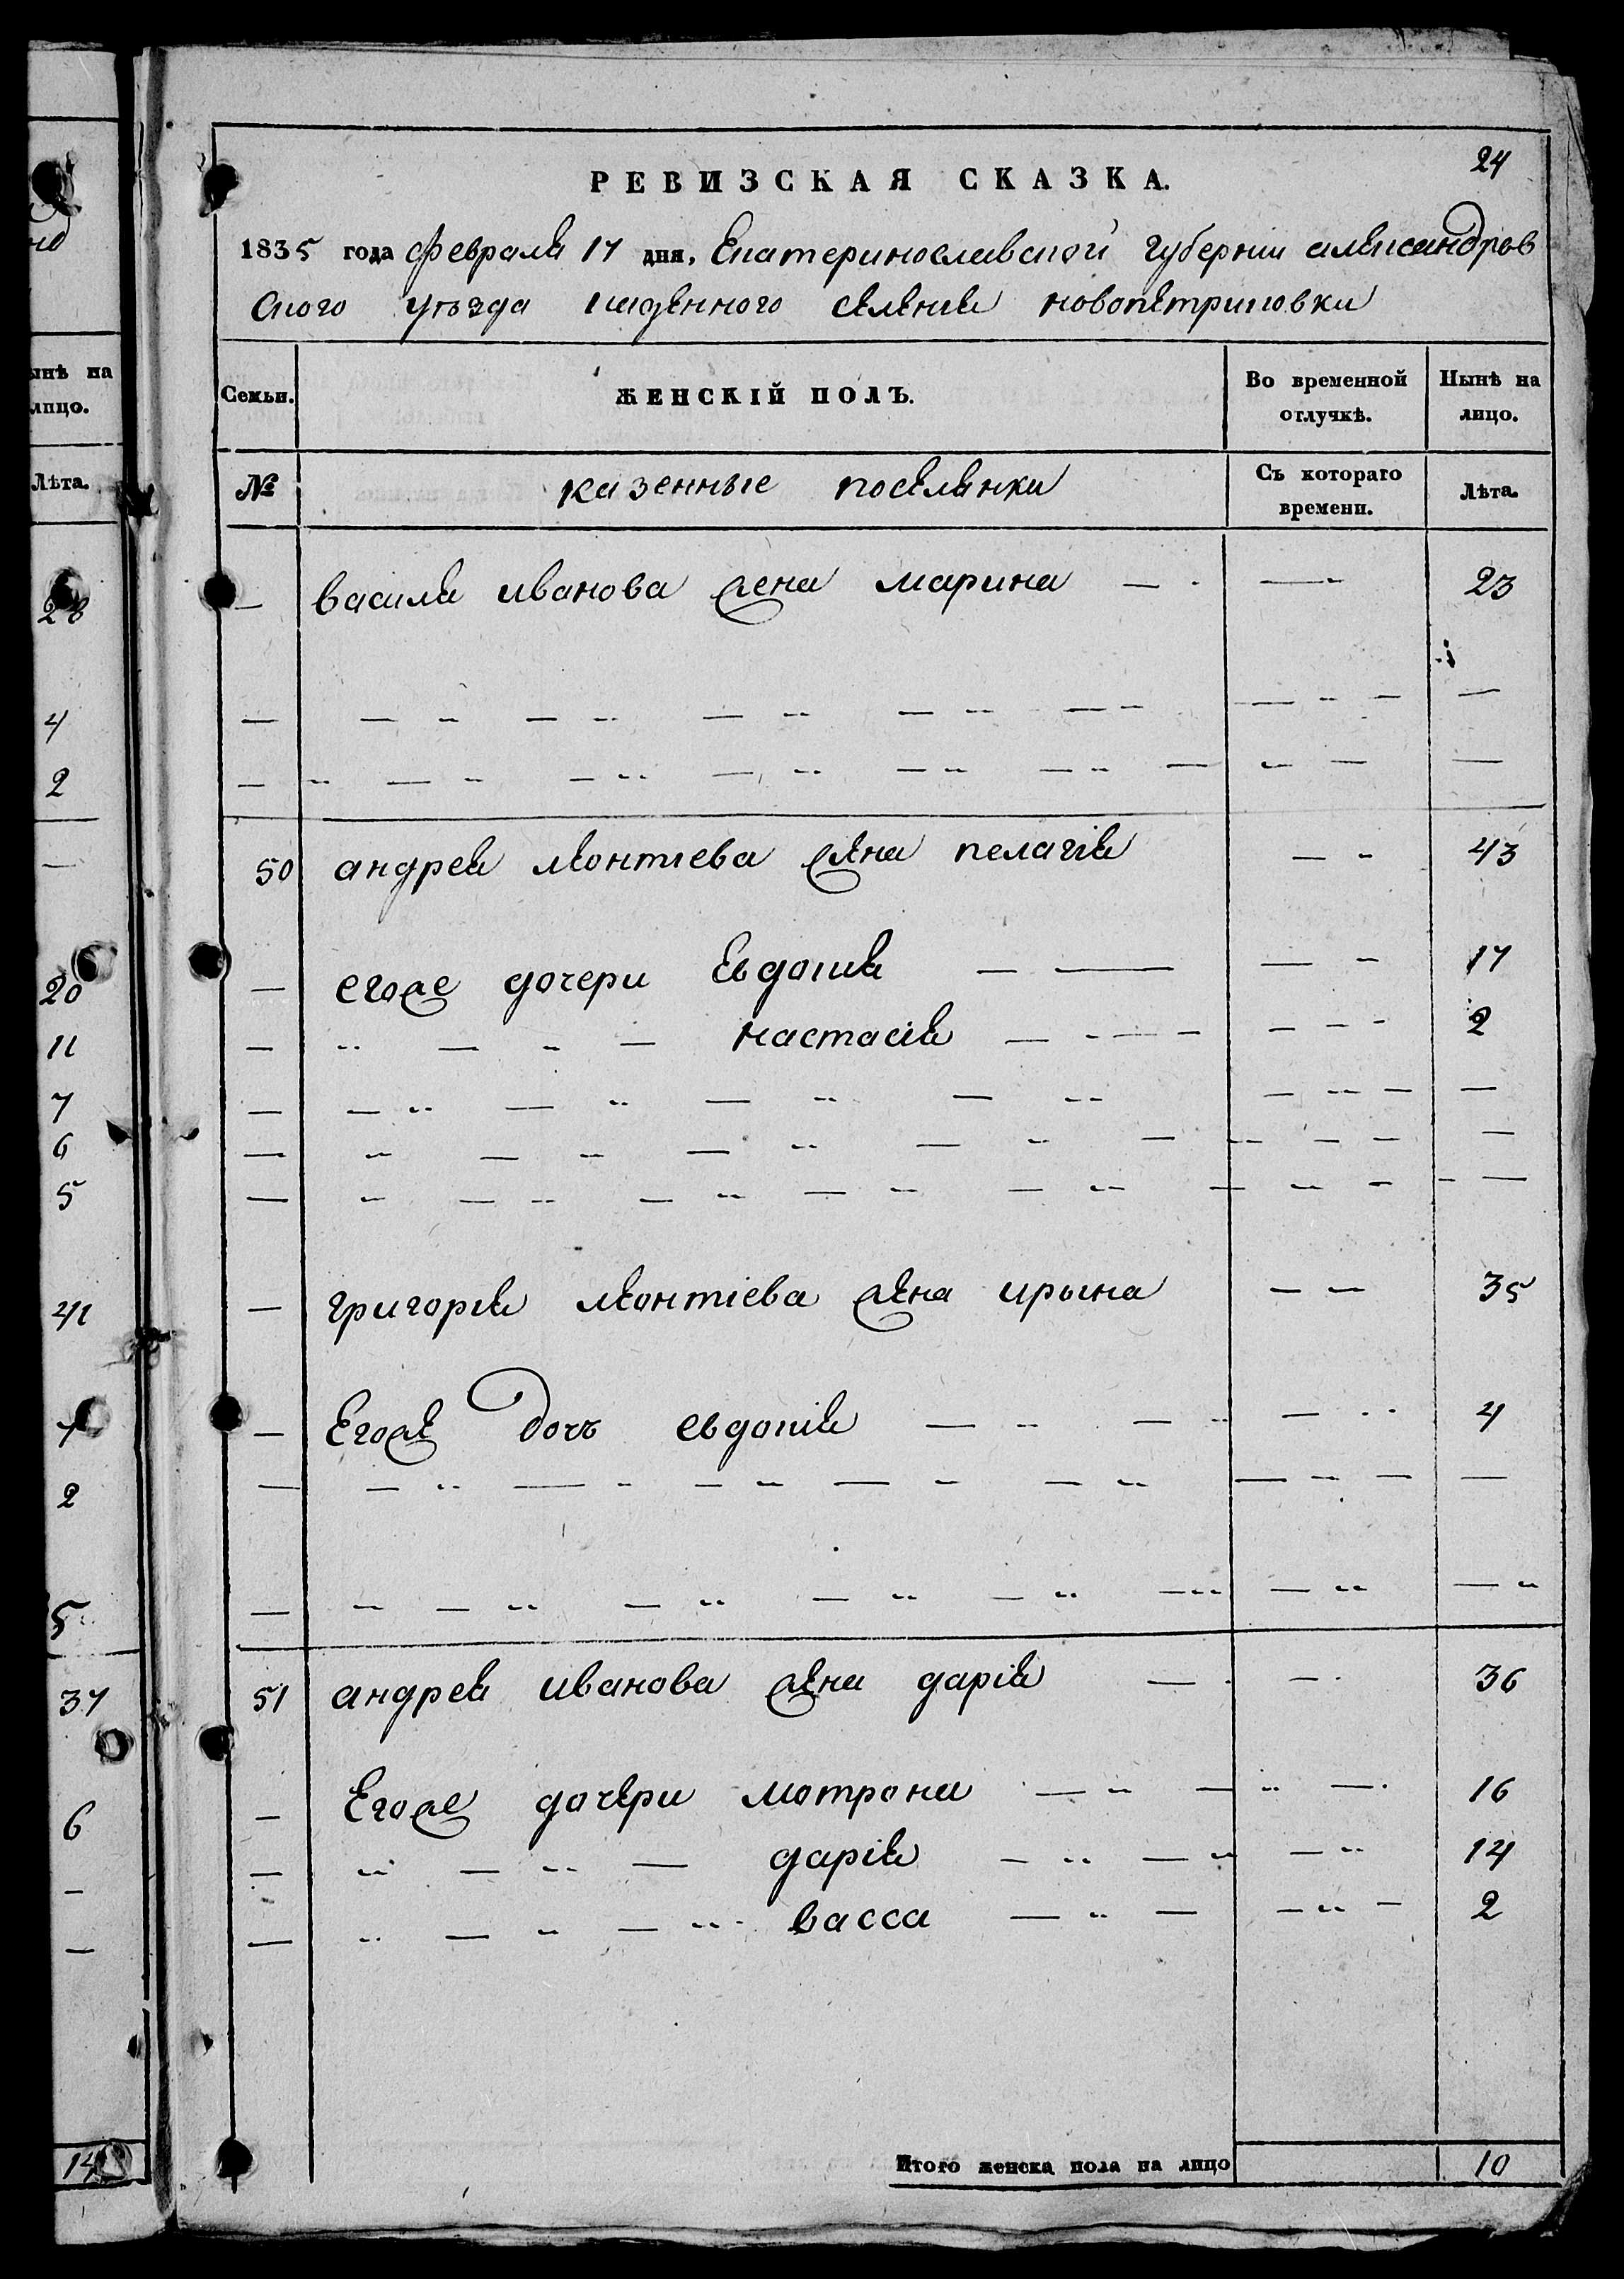 24
РЕВИЗСКАЯ СКАЗКА.
1835 года февраля 17 дня, Екатеринославской губернии александров
ского уѣзда казенного селения новопетриковки
Семьи. ЖЕНСКІЙ ПОЛЪ. Во временной отлучкѣ. Нынѣ на лицо.
№ казенные поселянки Съ котораго времени. Лѣта.
— василя иванова жена марина — — 23
— — — —
— — — —
50 андрея леонтиева жена пелагія — 43
— егоже дочери Евдокия — — 17
— — настасія — — 2
— — — —
— — — —
— — — —
— григорія леонтіева жена ирына — 35
— Егоже дочъ евдокія — — 4
— — — —
— — — —
51 андрея иванова жена дарія — — 36
— Егоже дочери мотрона — — 16
— — дарія — — 14
— — васса — — 2
Итого женска пола на лицо 10
ынѣ на
лицо.
Лѣта.
28
4
2
—
20
11
7
6
5
41
2
5
37
6
—
—